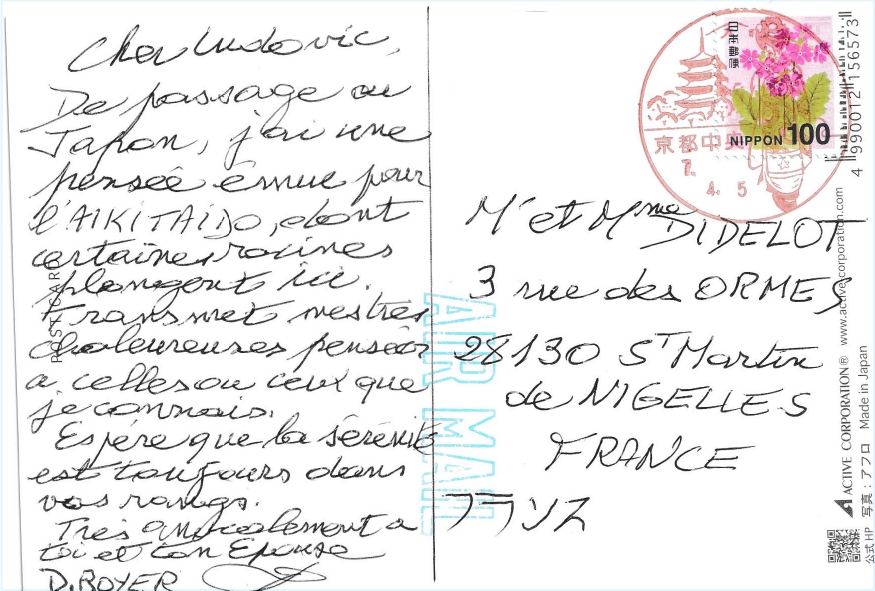 Cher Ludovic,
De passage au
Japon, j'ai une
pensée émue pour
l'AIKITAIDO, dont
certaines racines
plongent ici.
Transmet mes très
chaleureuses pensées
a celles ou ceux que
je connais.
Espère que la sérénité
est toujours dans
vos rangs.
Très amicalement a
toi et ton Epouse
D. ROYER
POSTCARD
AIR MAIL
日本郵便
NIPPON 100
京都中央
7.
4. 5
4 990012 156573
Mr et Mme DIDELOT
3 rue des ORMES
28130 St Martin
de NIGELLES
FRANCE
フランス
ACTIVE CORPORATION® www.active-corporation.com
写真：アフロ Made in Japan
公式HP